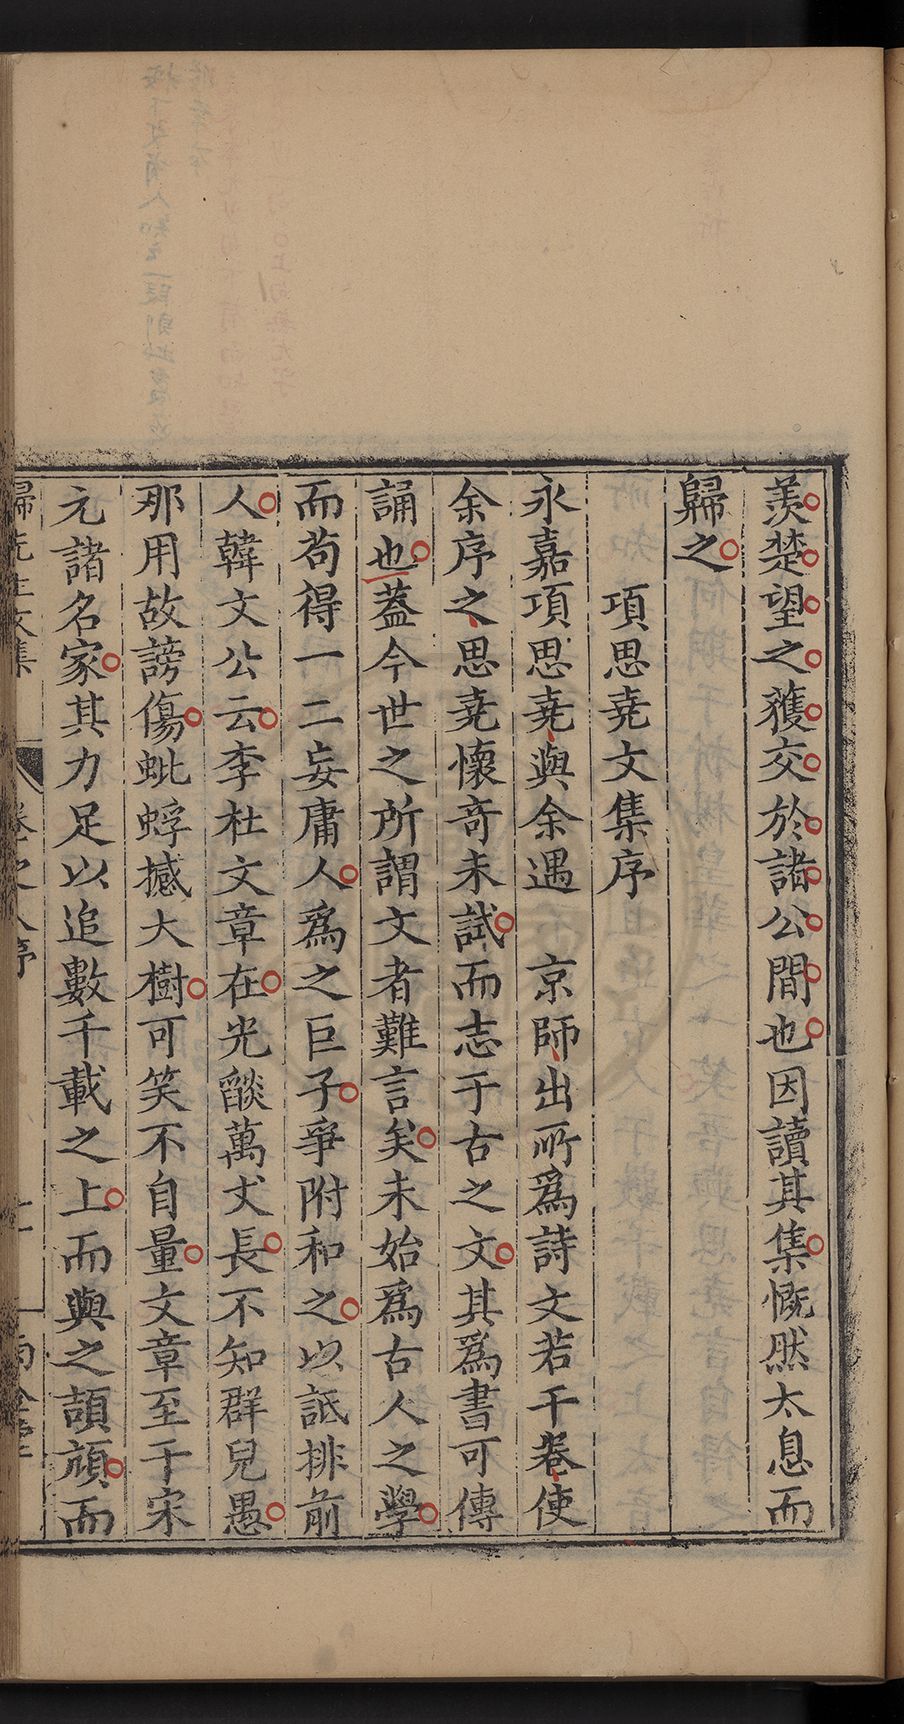 羨楚望之獲交於諸公間也因讀其集慨然太息而
歸之
項思堯文集序
永嘉項思堯與余遇 京師出所爲詩文若干卷使
余序之思堯懷奇未試而志于古之文其爲書可傳
誦也蓋今世之所謂文者難言矣未始爲古人之學
而茍得一二妄庸人爲之巨子爭附和之以詆排前
人韓文公云李杜文章在光燄萬丈長不知群兒愚
那用故謗傷蚍蜉撼大樹可笑不自量文章至于宋
元諸名家其力足以追數千載之上而與之頡頏而
歸先生文集 卷之 序